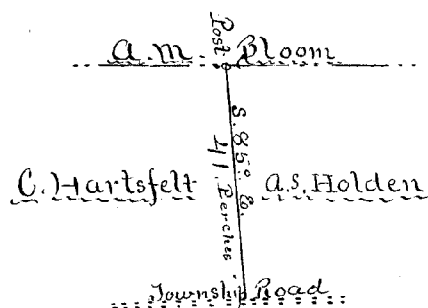 A.M. Bloom
Post
S. 85° E.
41. Perches
C. Hartsfelt
A.S. Holden
Township Road